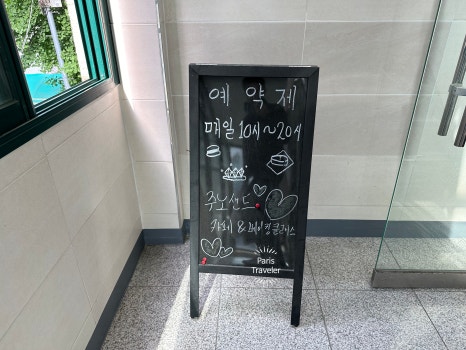 예 약 제
매일 10시~20시
주오샌드
카페 & 베이킹클래스
Paris
Traveler